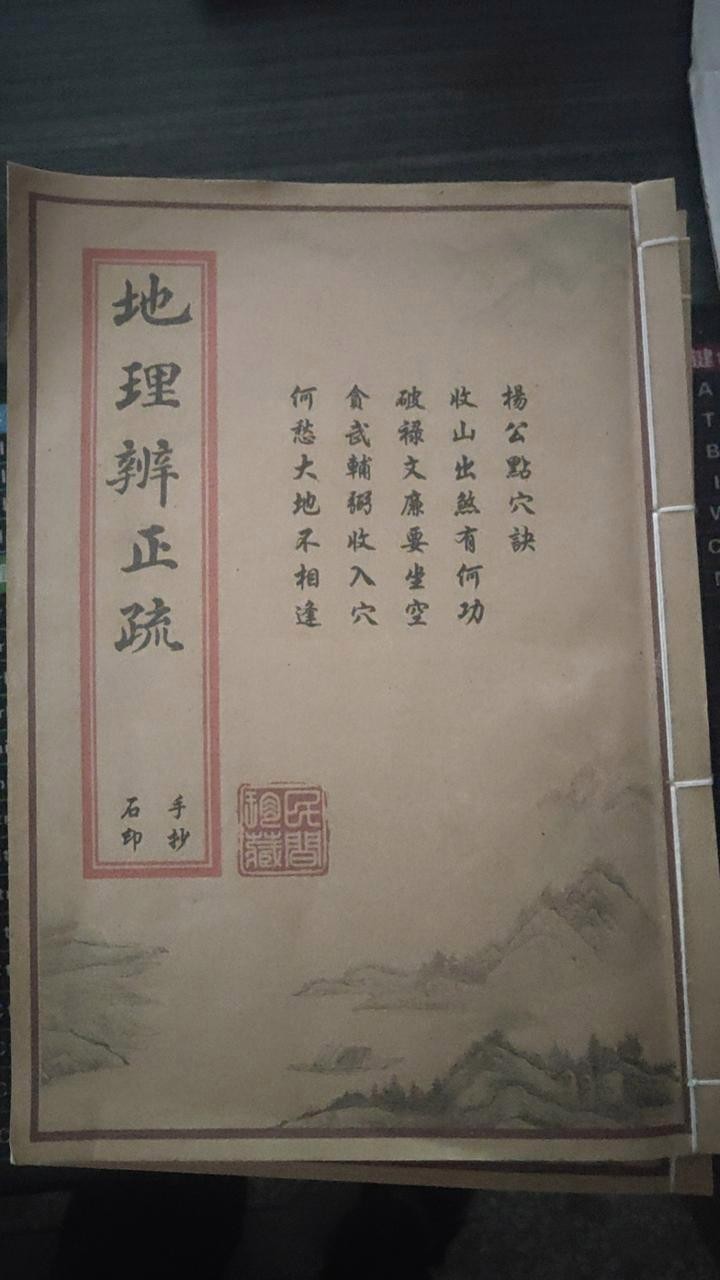 地理辨正疏
手抄
石印
楊公點穴訣
收山出煞有何功
破祿文廉要坐空
貪武輔弼收入穴
何愁大地不相逢
民間
珍藏